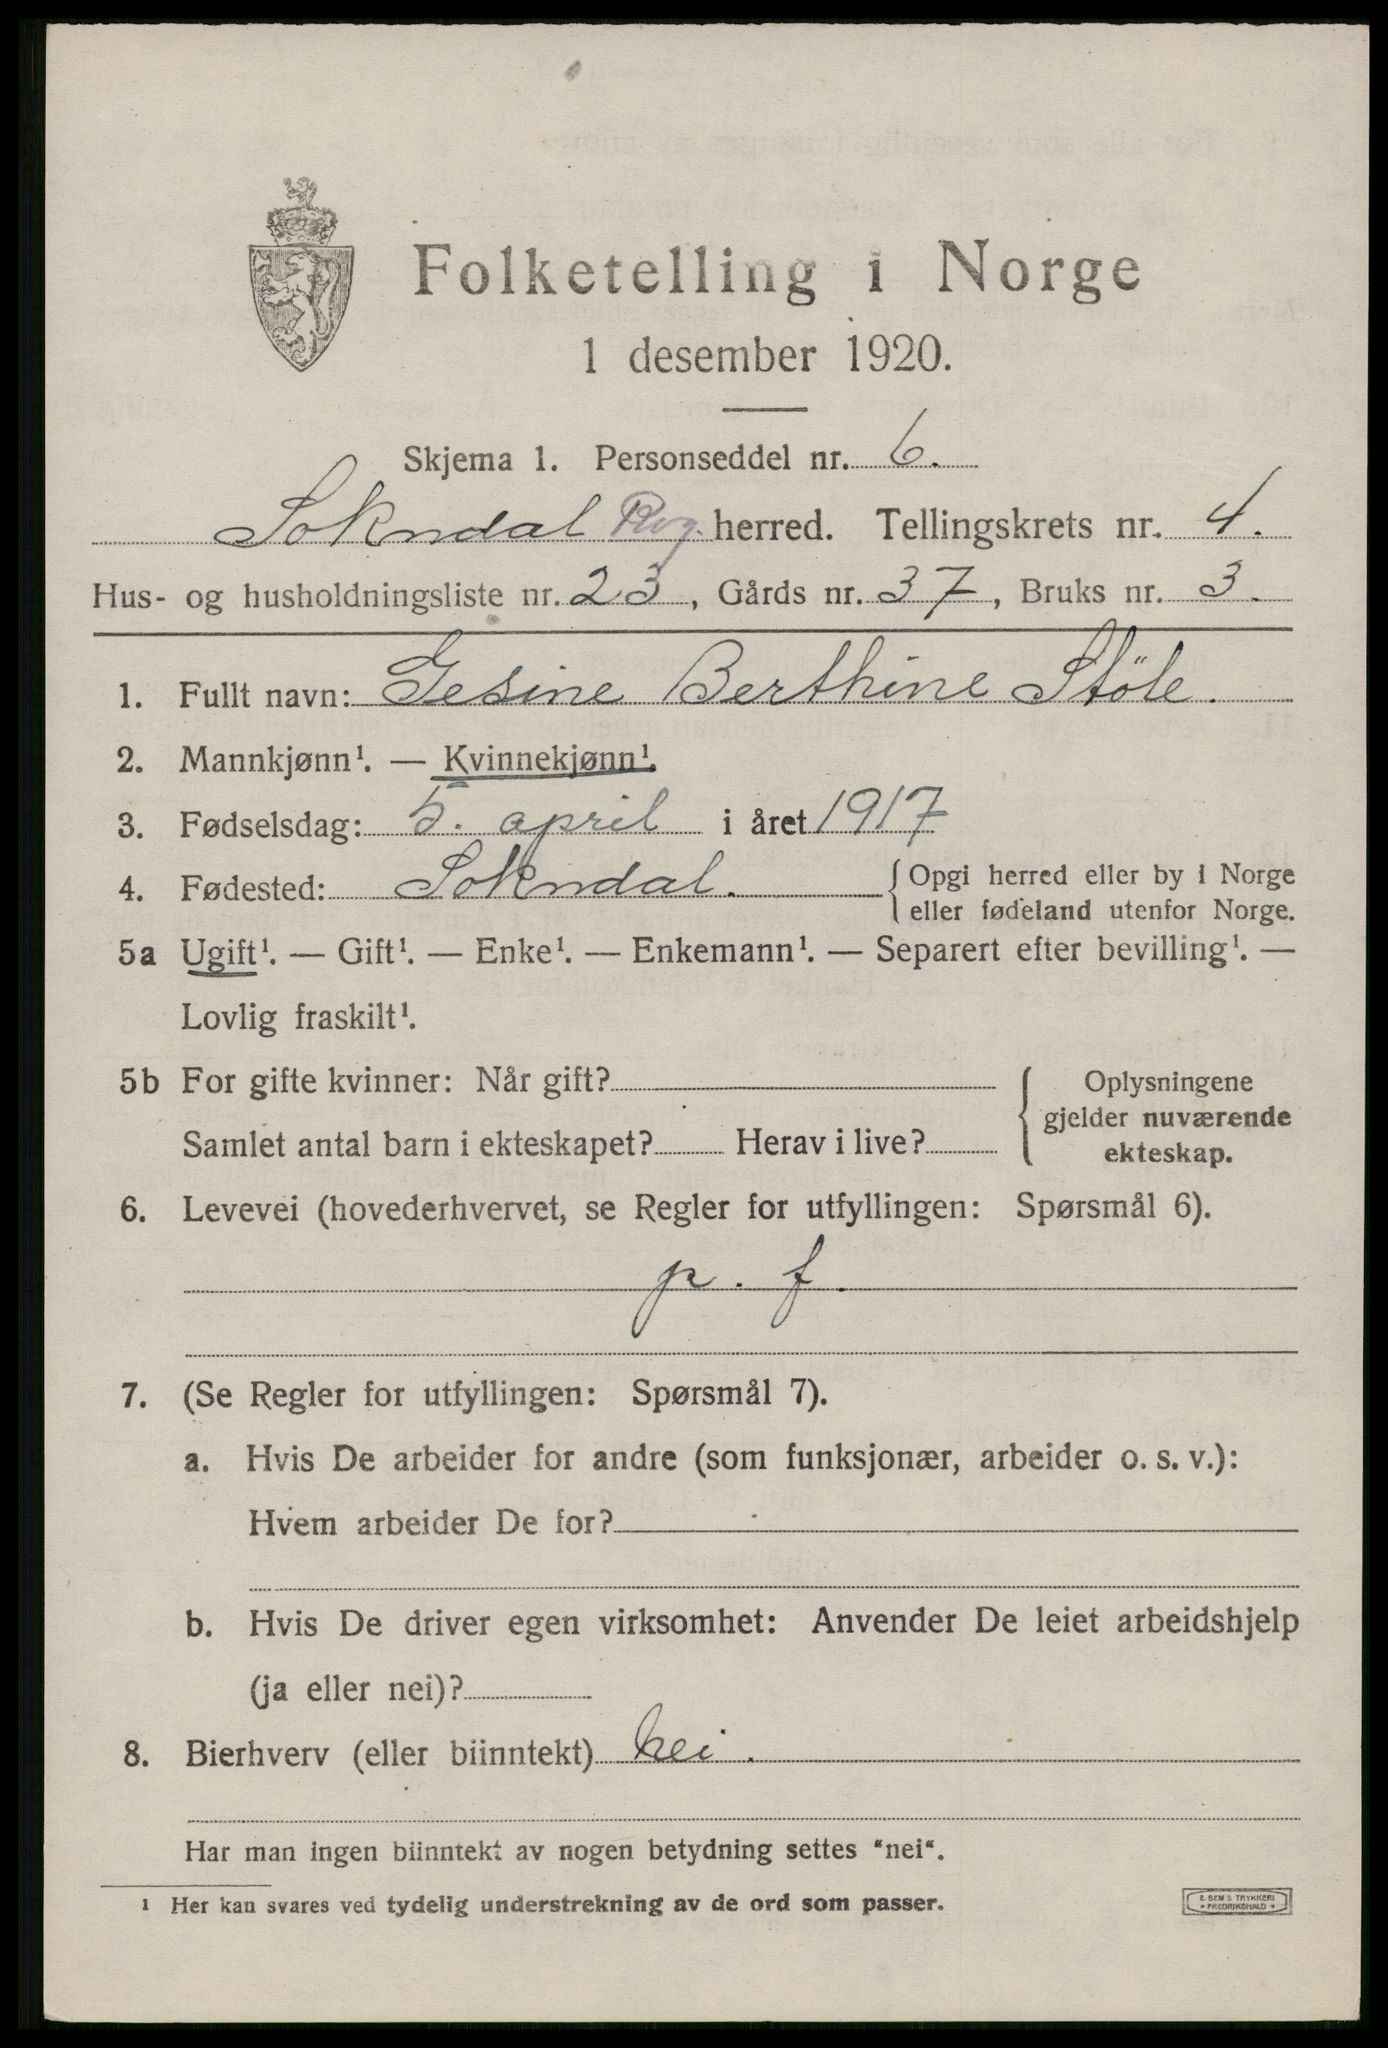 Folketelling i Norge
1 desember 1920.
Skjema 1. Personseddel nr. 6.
Sokndal Rog. herred. Tellingskrets nr. 4.
Hus- og husholdningsliste nr. 23, Gårds nr. 37, Bruks nr. 3.
1. Fullt navn: Gesine Berthine Stöle.
2. Mannkjønn¹. — Kvinnekjønn¹.
3. Fødselsdag: 5. april i året 1917
4. Fødested: Sokndal. { Opgi herred eller by i Norge
eller fødeland utenfor Norge.
5a Ugift¹. — Gift¹. — Enke¹. — Enkemann¹. — Separert efter bevilling¹. —
Lovlig fraskilt¹.
5b For gifte kvinner: Når gift? { Oplysningene
gjelder nuværende
Samlet antal barn i ekteskapet? Herav i live? ekteskap.
6. Levevei (hovederhvervet, se Regler for utfyllingen: Spørsmål 6).
p. f.
7. (Se Regler for utfyllingen: Spørsmål 7).
a. Hvis De arbeider for andre (som funksjonær, arbeider o. s. v.):
Hvem arbeider De for?
b. Hvis De driver egen virksomhet: Anvender De leiet arbeidshjelp
(ja eller nei)?
8. Bierhverv (eller biinntekt) nei.
Har man ingen biinntekt av nogen betydning settes "nei".
¹ Her kan svares ved tydelig understrekning av de ord som passer.
E. SEM'S TRYKKERI
* FREDRIKSHALD *